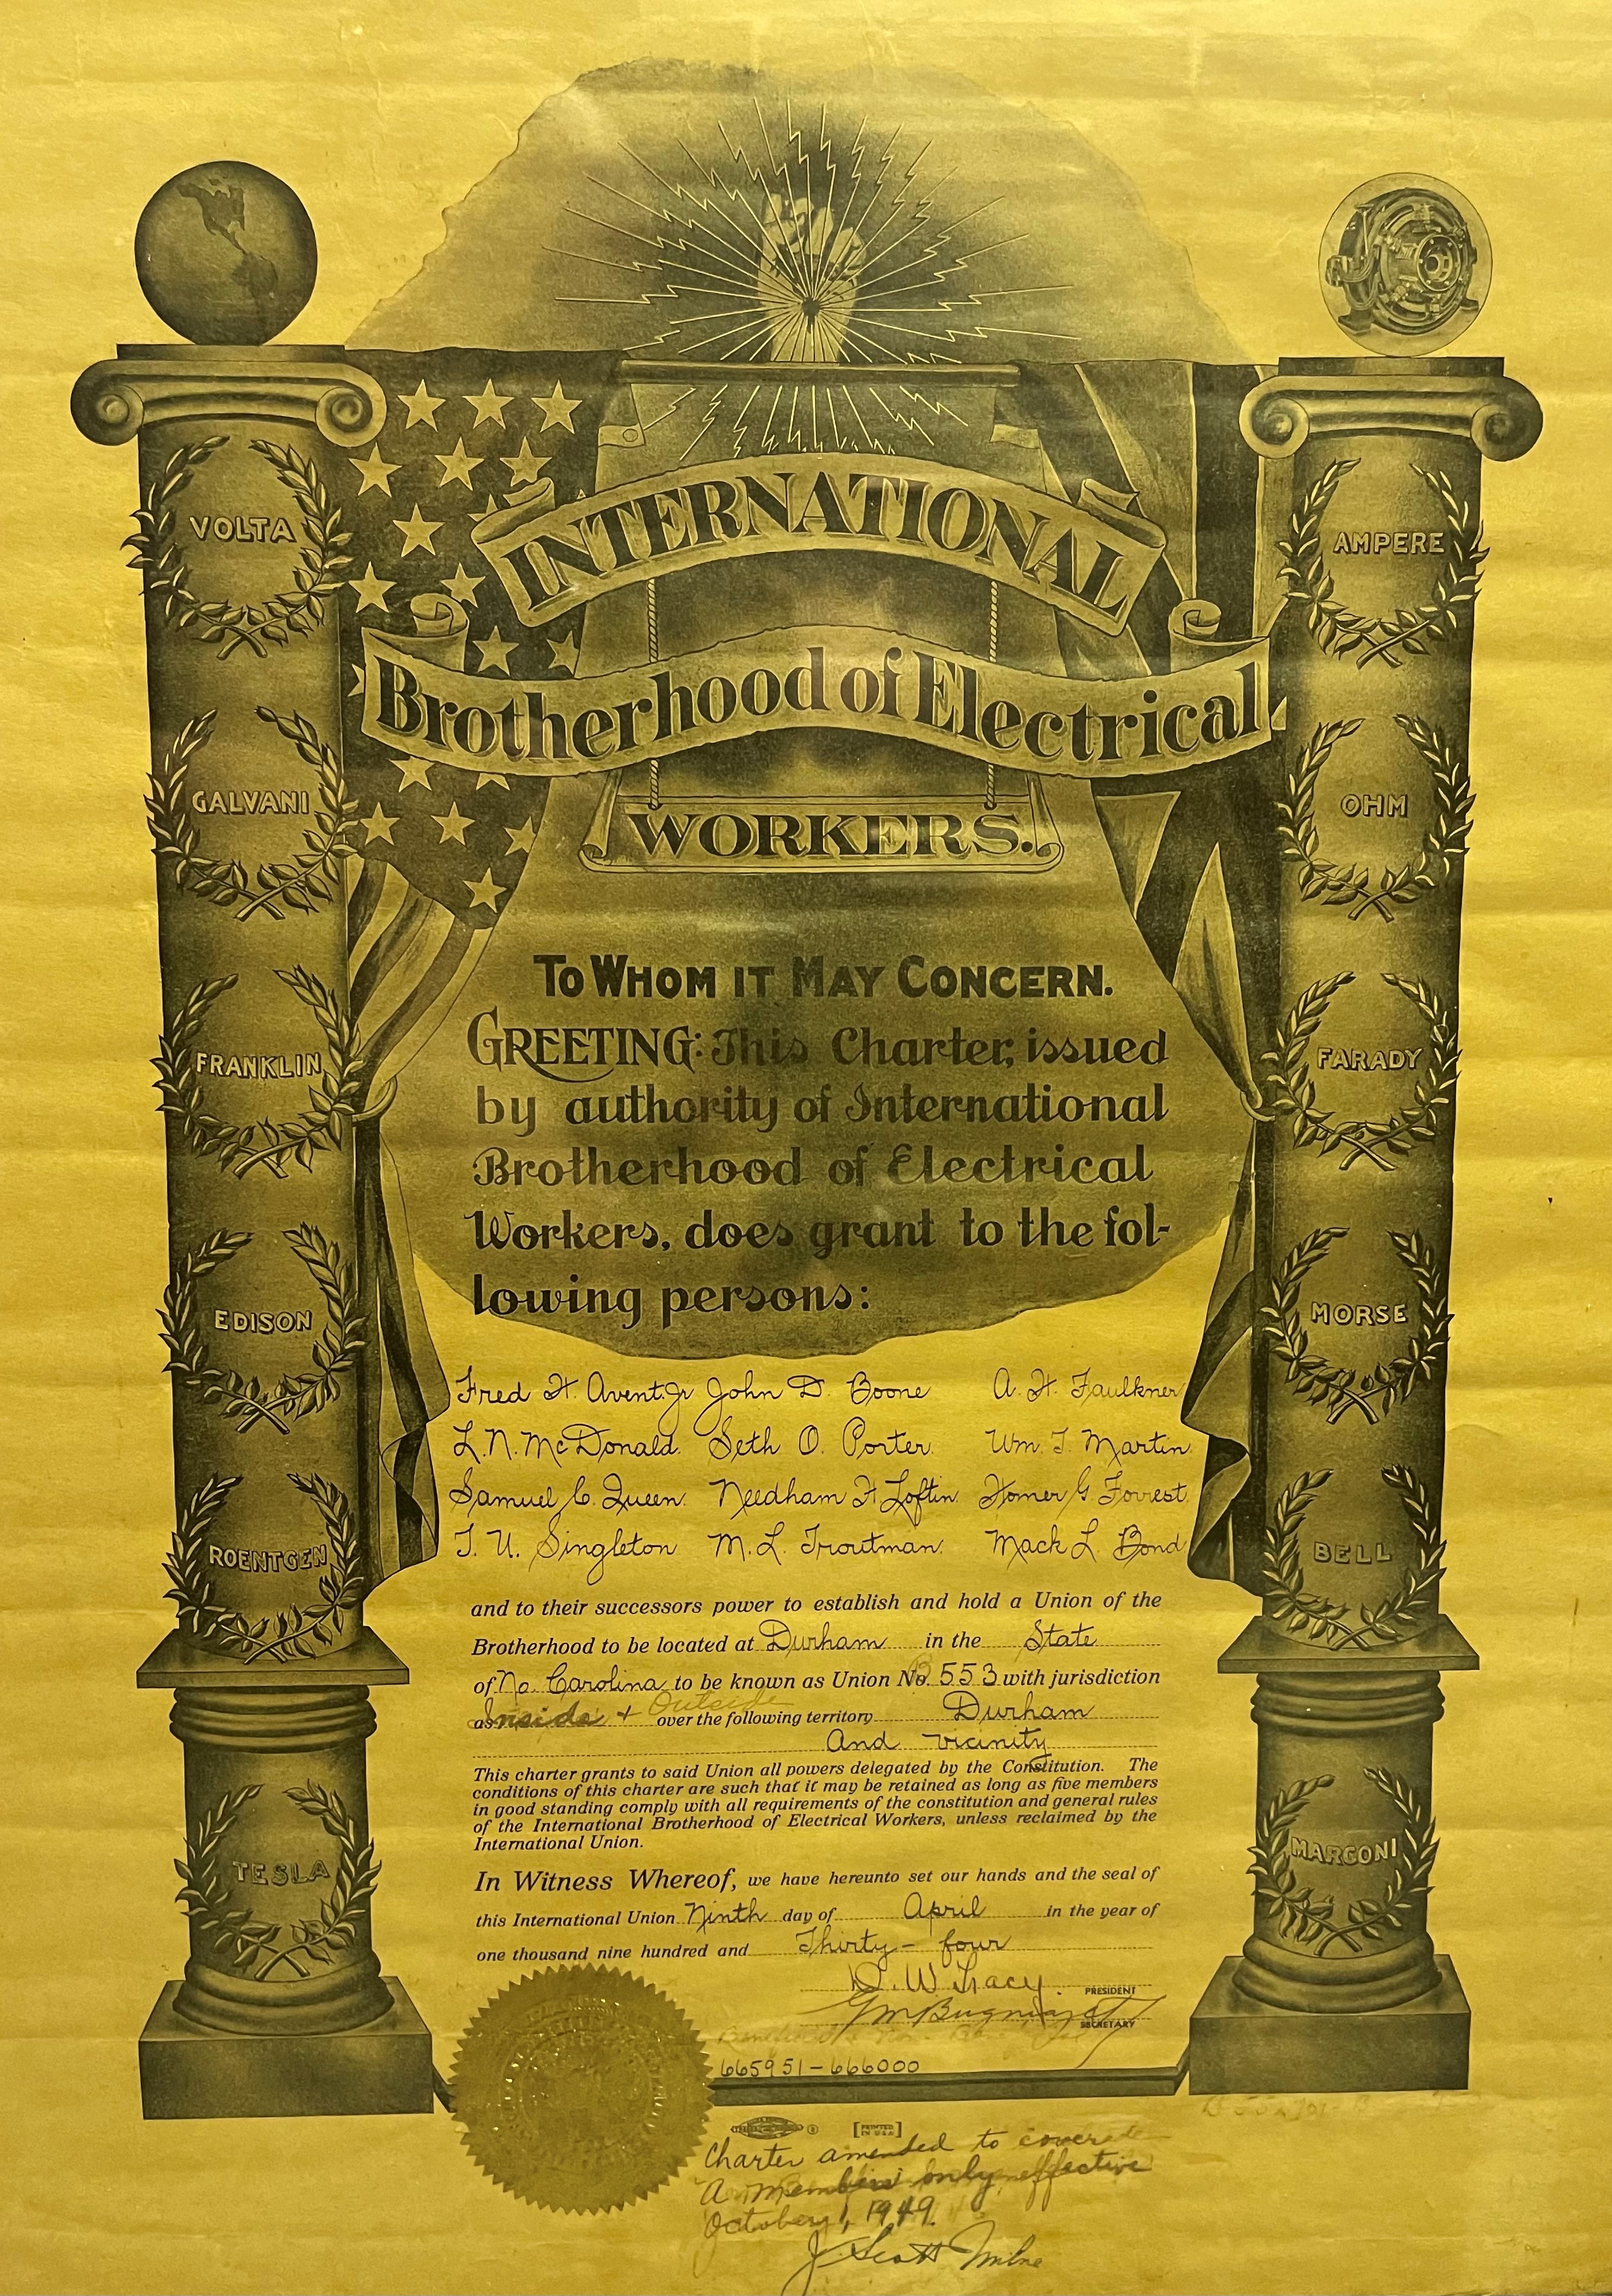 INTERNATIONAL
Brotherhood of Electrical
WORKERS.
VOLTA
GALVANI
FRANKLIN
EDISON
ROENTGEN
TESLA
AMPERE
OHM
FARADY
MORSE
BELL
MARCONI
TO WHOM IT MAY CONCERN.
GREETING: This Charter, issued
by authority of International
Brotherhood of Electrical
Workers, does grant to the fol-
lowing persons:
Fred H. Avent Jr John D. Boone A. H. Faulkner
L. N. McDonald. Seth O. Porter. Wm. T. Martin.
Samuel C. Queen. Needham F. Loftin. Homer G. Forrest.
T. U. Singleton M. L. Troutman. Mack L. Bond
and to their successors power to establish and hold a Union of the
Brotherhood to be located at Durham in the State
of No. Carolina to be known as Union No. 553 with jurisdiction
as Inside + Outside over the following territory Durham
And vicinity
This charter grants to said Union all powers delegated by the Constitution. The
conditions of this charter are such that it may be retained as long as five members
in good standing comply with all requirements of the constitution and general rules
of the International Brotherhood of Electrical Workers, unless reclaimed by the
International Union.
In Witness Whereof, we have hereunto set our hands and the seal of
this International Union Ninth day of April in the year of
one thousand nine hundred and Thirty-four
D. W. Tracy. PRESIDENT
G M Bugniazet SECRETARY
665951-666000
PRINTED
IN U.S.A.
Charter amended to cover
"A" Members only, effective
October 1, 1949.
J. Scott Milne